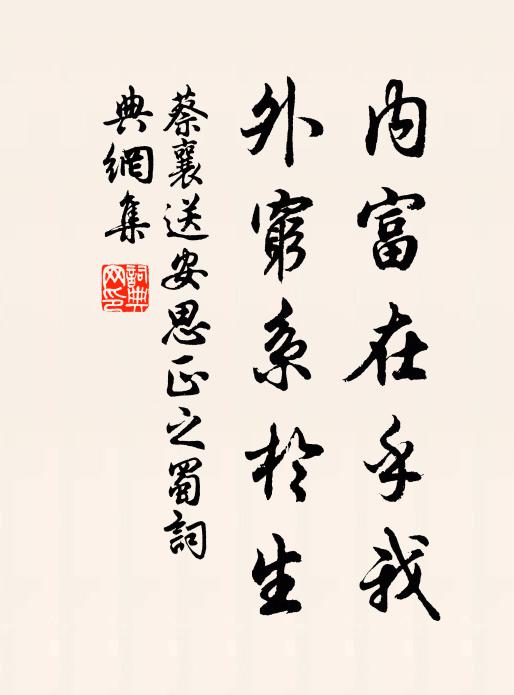 内富在乎我
外窮系於生
蔡襄送安思正之蜀詞
典網集
詞典網印